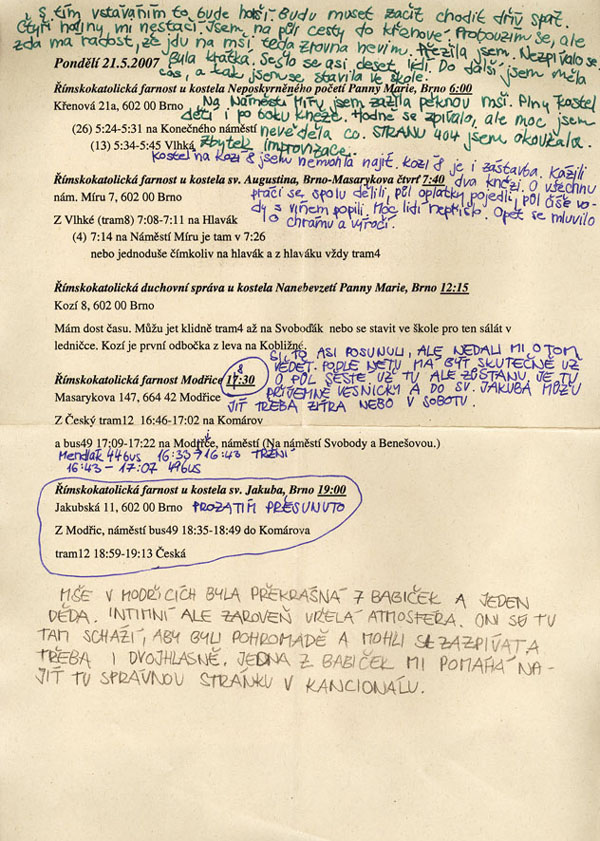 S tím vstáváním to bude horší. Budu muset začít chodit dřív spát.
Čtyři hodiny mi nestačí. Jsem na půl cesty do Křenové. Probouzím se, ale
zda má radost, že jdu na mši, teda zrovna nevím. Přežila jsem. Nezpívalo se.
Byla krátká. Sešlo se asi deset lidí. Do další jsem měla
čas, a tak jsem se stavila ve škole.
Pondělí 21.5.2007
Římskokatolická farnost u kostela Neposkvrněného početí Panny Marie, Brno 6:00
Křenová 21a, 602 00 Brno
Na Náměstí Míru jsem zažila pěknou mši. Plný kostel
dětí i po boku kněze. Hodně se zpívalo, ale moc jsem
(26) 5:24-5:31 na Konečného náměstí
nevěděla co. STRANU 404 jsem okoukala.
(13) 5:34-5:45 Vlhká
zbytek improvizace.
Kostel na Kozí 8 jsem nemohla najít. Kozí 8 je i zástavba. Kázili
Římskokatolická farnost u kostela sv. Augustina, Brno-Masarykova čtvrť 7:40
dva knězi. O všechnu
nám. Míru 7, 602 00 Brno
práci se spolu dělili, půl oplatky pojedli, půl číše vo-
dy s vínem popili. Moc lidí nepřišlo. Opět se mluvilo
Z Vlhké (tram8) 7:08-7:11 na Hlavák
o chrámu a výročí.
(4) 7:14 na Náměstí Míru je tam v 7:26
nebo jednoduše čímkoliv na hlavák a z hlaváku vždy tram4
Římskokatolická duchovní správa u kostela Nanebevzetí Panny Marie, Brno 12:15
Kozí 8, 602 00 Brno
Mám dost času. Můžu jet klidně tram4 až na Svoboďák nebo se stavit ve škole pro ten salát v
ledničce. Kozí je první odbočka z leva na Kobližné.
SI TO ASI POSUNULI, ALE NEDALI MI O TOM
VĚDĚT. PODLE NETU MÁ BÝT SKUTEČNĚ UŽ
8
Římskokatolická farnost Modřice 17:30
O PŮL ŠESTÉ UŽ TU ALE ZŮSTANU JE TU
Masarykova 147, 664 42 Modřice
PŘÍJEMNĚ VESNICKY A DO SV. JAKUBA MŮŽU
JÍT TŘEBA ZÍTRA NEBO V SOBOTU.
Z Český tram12 16:46-17:02 na Komárov
a bus49 17:09-17:22 na Modřice, náměstí (Na náměstí Svobody a Benešovou.)
Mendlák 44bus 16:33 → 16:43 TRŽNÍ
16:43 – 17:07 49BUS
Římskokatolická farnost u kostela sv. Jakuba, Brno 19:00
Jakubská 11, 602 00 Brno PROZATÍM PŘESUNUTO
Z Modřic, náměstí bus49 18:35-18:49 do Komárova
tram12 18:59-19:13 Česká
MŠE V MODŘICÍCH BYLA PŘEKRÁSNÁ 7 BABIČEK A JEDEN
DĚDA. INTIMNÍ ALE ZÁROVEŇ VŘELÁ ATMOSFÉRA. ONI SE TU
TAM SCHÁZÍ, ABY BYLI POHROMADĚ A MOHLI SI ZAZPÍVAT A
TŘEBA I DVOJHLASNĚ. JEDNA Z BABIČEK MI POMÁHÁ NA-
JÍT TU SPRÁVNOU STRÁNKU V KANCIONÁLU.